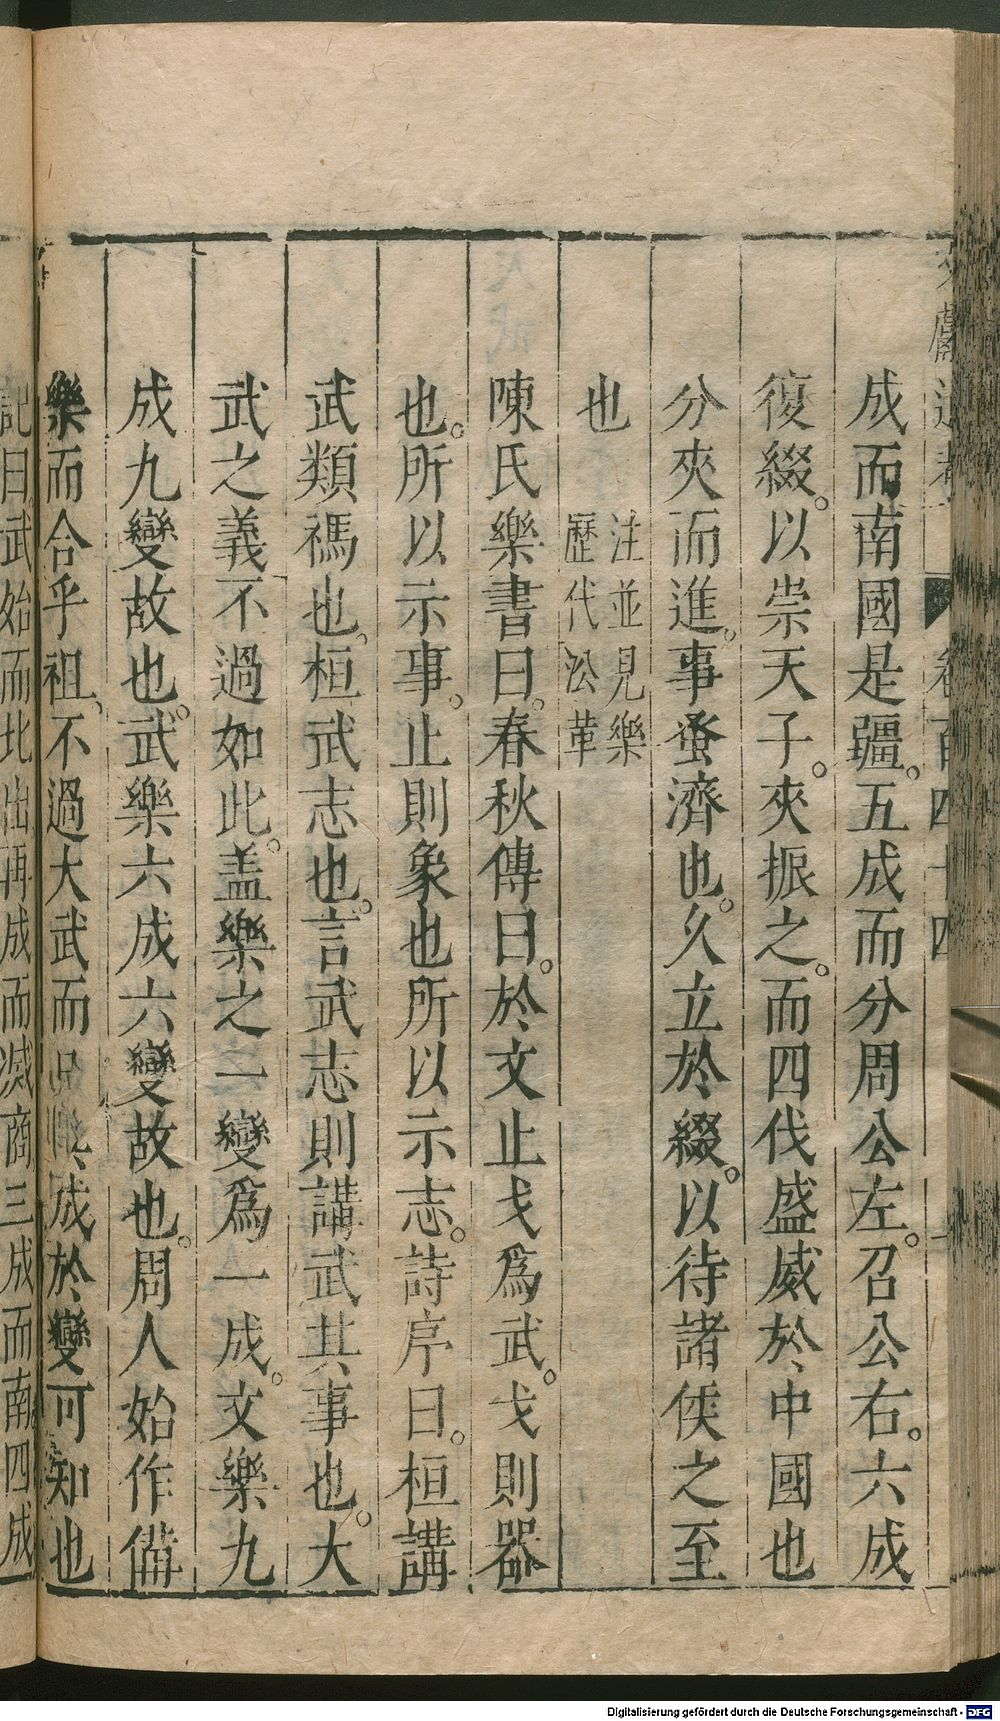 成而南國是疆。五成而分周公左。召公右。六成
復綴。以崇天子。夾振之。而四伐盛威於中國也
分夾而進。事蚤濟也。久立於綴。以待諸侯之至
也 注並見樂
歷代㳂革
陳氏樂書曰。春秋傳曰。於文止戈爲武。戈則器
也。所以示事。止則象也所以示志。詩序曰。桓講
武類禡也。桓武志也。言武志則講武其事也。大
武之義不過如此。盖樂之一變爲一成。文樂九
成九變故也。武樂六成六變故也。周人始作備
樂而合乎祖、不過大武而成於變可知也
記曰武始而北出再成而滅商三成而南四成
卷百四十四
Digitalisierung gefördert durch die Deutsche Forschungsgemeinschaft - DFG